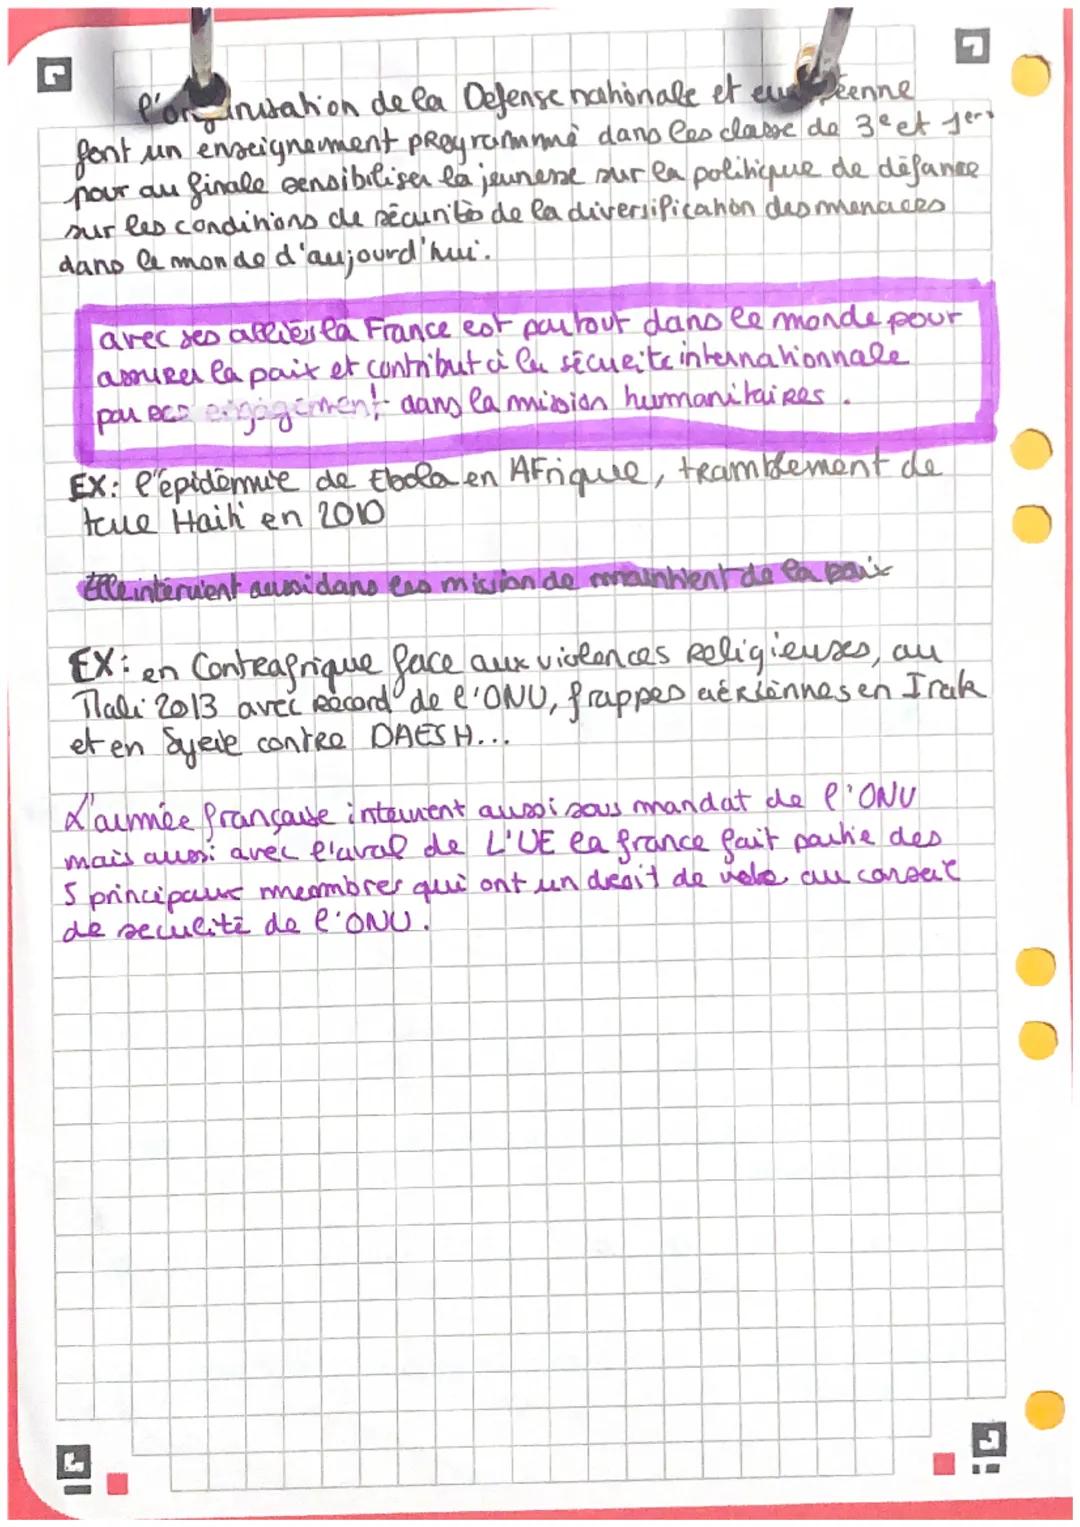 l'organisation de la Defense nationale et européenne
font un enseignement programmé dans les classe de 3e et 1ere
pour au finale sensibiliser la jeunesse sur la politique de défance
sur les conditions de sécuritès de la diversification des menaces
dans le monde d'aujourd'hui.
avec ses alliés la France est partout dans le monde pour
assurer la paix et contribut à la sécurité internationnale
par ses engagement dans la mission humanitaires.
EX: l'épidémie de Ebola en AFrique, tramblement de
terre Haiti en 2010
Elle intervient aussi dans les mission de maintient de la paix
EX: en Centreafrique face aux violences religieuses, au
Mali 2013 avec record de l'ONU, frappes aériennes en Irak
et en Syrie contre DAESH...
L'armée française intervient aussi sous mandat de l'ONU
mais aussi avec l'aval de L'UE la france fait partie des
5 principaux meambres qui ont un droit de veto au conseil
de securité de l'ONU.